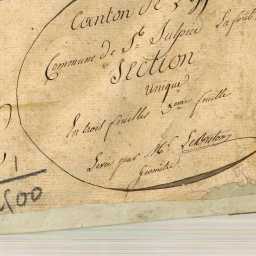 Canton de
Commune de St. Sulpice Laforêt
Section
Unique
En trois feuilles 2eme feuille
Levée par Mr.
Géomètre
1
500